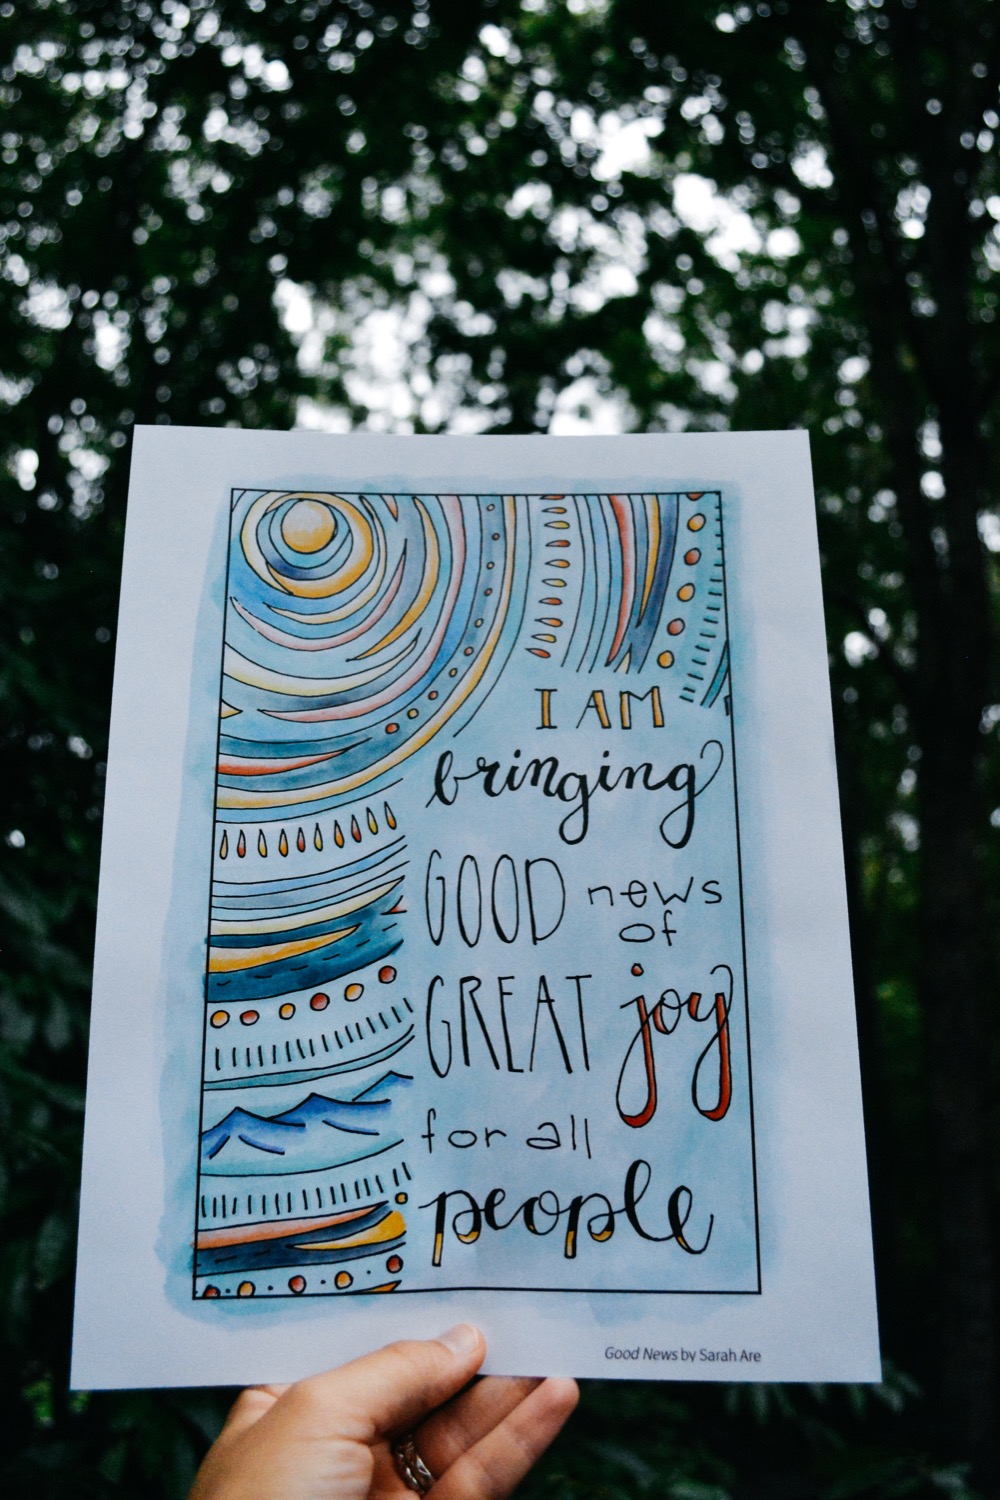 I AM
bringing
GOOD news
of
GREAT joy
for all
people
Good News by Sarah Are